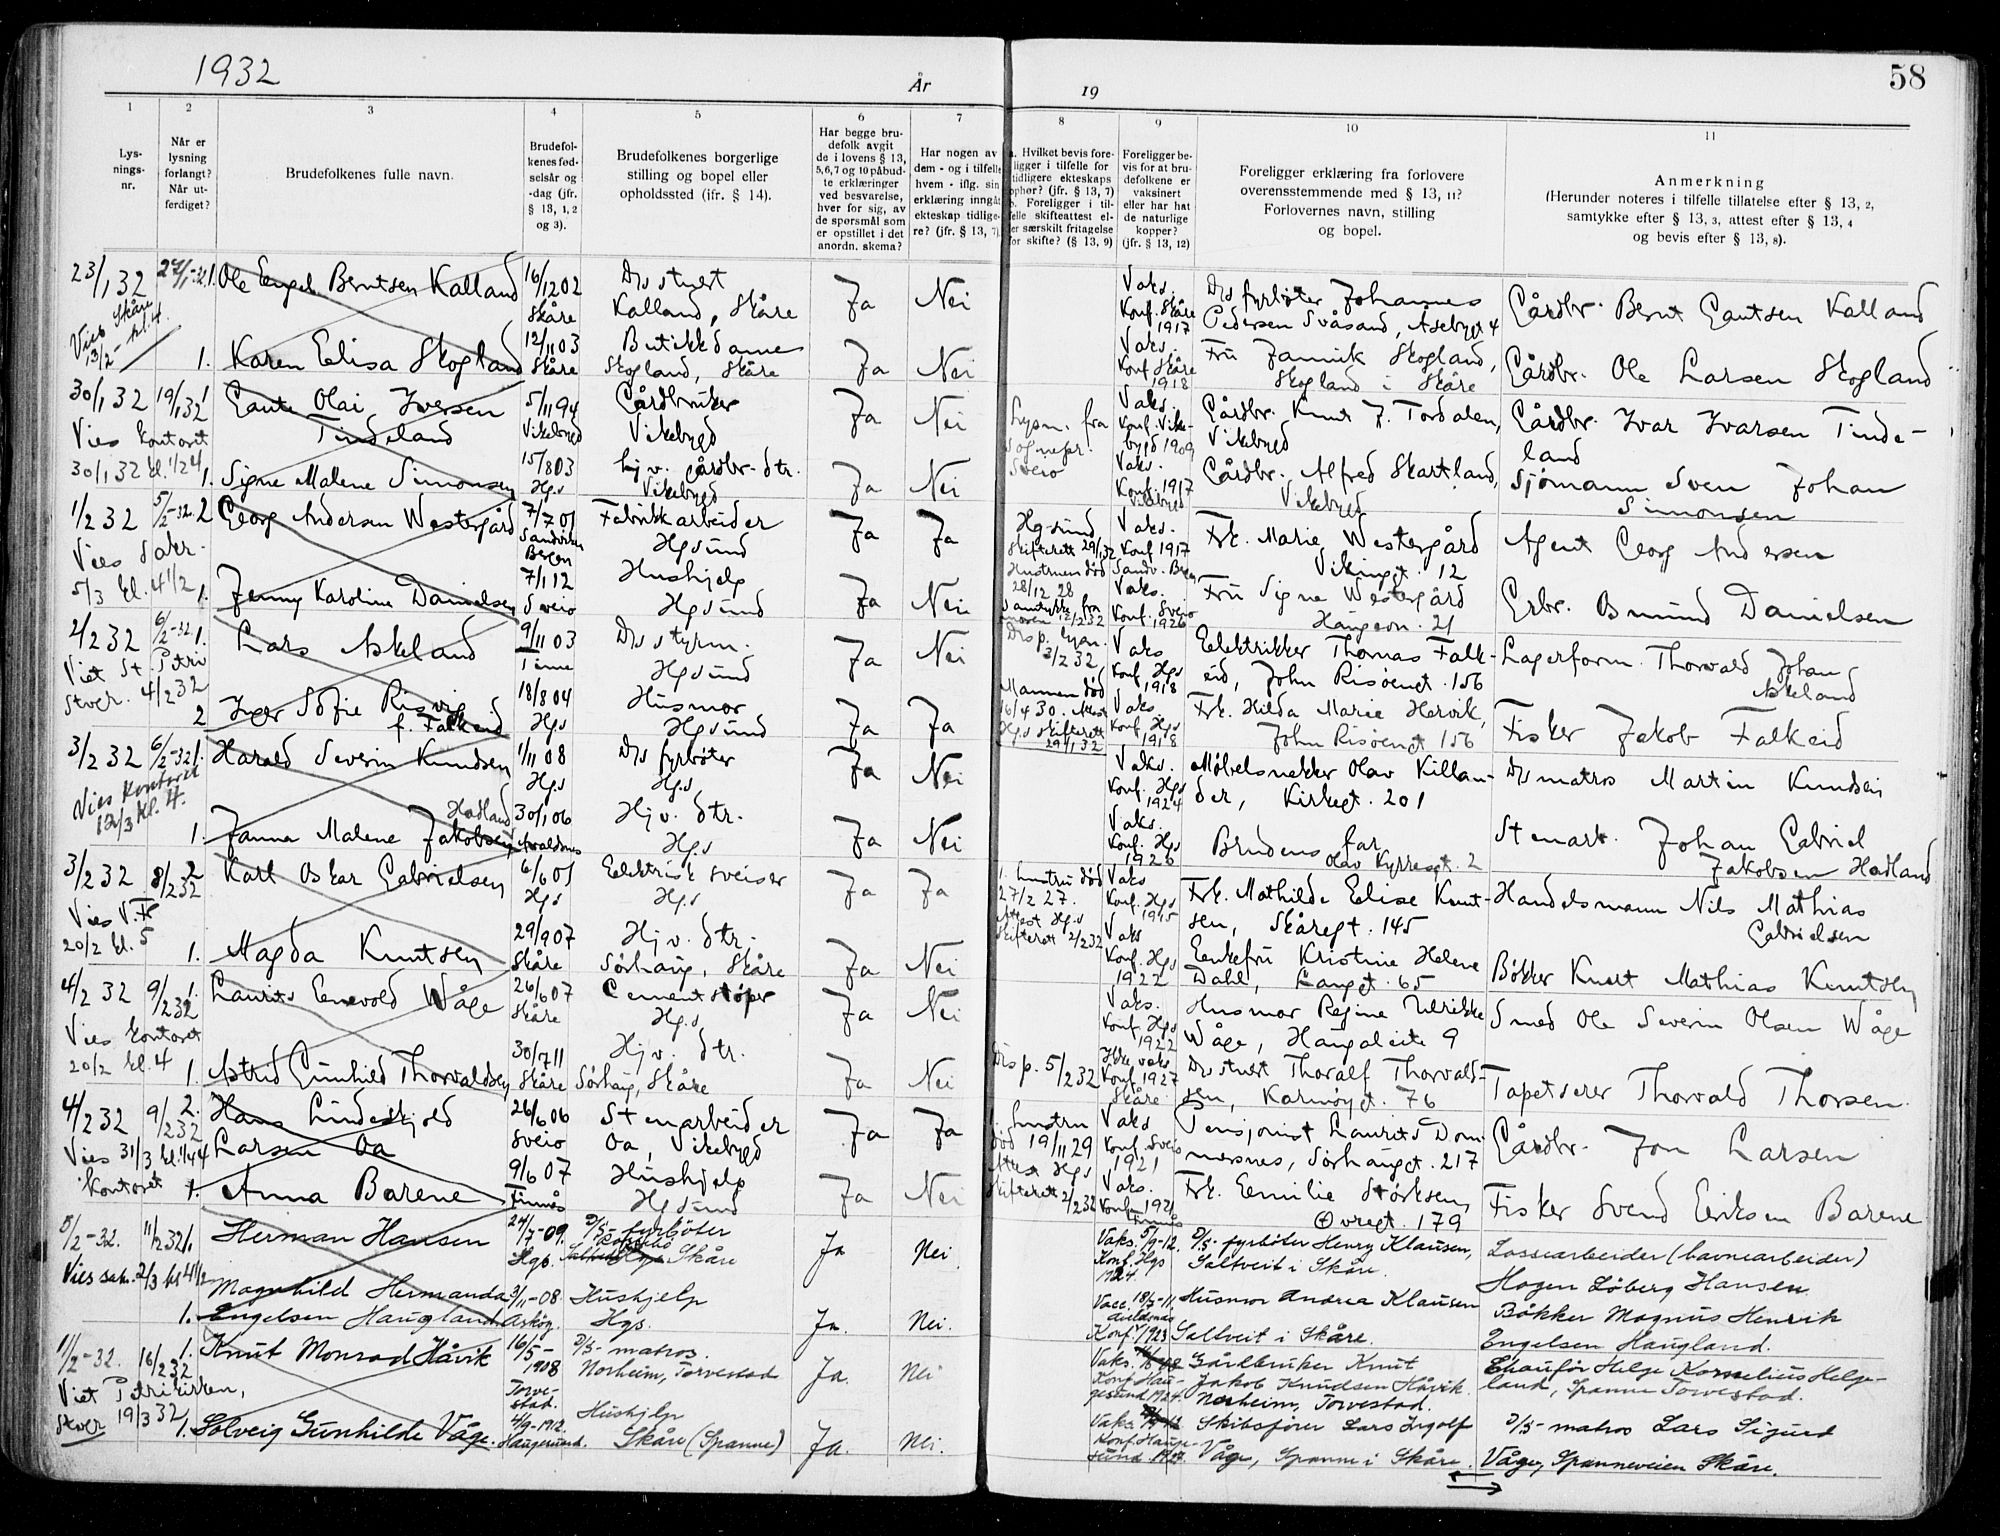 1932
År
19
58
1
2
3
4
5
6
7
8
9
10
11
Lys-
nings-
nr.
Når er
lysning
forlangt?
Når ut-
ferdiget?
Brudefolkenes fulle navn.
Brudefol-
kenes fød-
selsår og
-dag (jfr.
§ 13, 1, 2
og 3).
Brudefolkenes borgerlige
stilling og bopel eller
opholdssted (ifr. § 14).
Har begge bru-
defolk avgit
de i lovens § 13,
5, 6, 7 og 10 påbud-
te erklæringer
ved besvarelse,
hver for sig, av
de spørsmål som
er opstillet i det
anordn. skema?
Har nogen av
dem - og i tilfelle
hvem - iflg. sin
erklæring inngått
ekteskap tidlige-
re? (jfr. § 13, 7)
a. Hvilket bevis fore-
ligger i tilfelle for
tidligere ekteskaps
ophør? (jfr. § 13, 7)
b. Foreligger i til-
felle skifteattest el-
ler særskilt fritagelse
for skifte? (§ 13, 9)
Foreligger be-
vis for at bru-
defolkene er
vaksinert
eller har hat
de naturlige
kopper?
(jfr. § 13, 12)
Foreligger erklæring fra forlovere
overensstemmende med § 13, 11?
Forlovernes navn, stilling
og bopel.
Anmerkning
(Herunder noteres i tilfelle tillatelse efter § 13, 2,
samtykke efter § 13, 3, attest efter § 13, 4
og bevis efter § 13, 8).
23/1 32 1. Ole Engel Berntsen Kalland 16/12 02 Skåre D/s stuert Kalland, Skåre Ja Nei Vaks. Konf. Skåre 1917 D/s fyrbøter Johannes Pedersen Svåsand, 4 Gårdbr. Bernt Gautsen Kalland
Vies Skåre 13/2 - kl. 4.
1. Karen Elisa Skogland 12/11 03 Skåre Butikkdame Skogland, Skåre Ja Nei Vaks. Konf. Skåre 1918 Fru Jannik Skogland, Skogland i Skåre Gårdbr. Ole Larsen Skogland
30/1 32 19/1 32 1 Gaute Olai Iversen Tindeland 5/11 94 Vikebygd Gårdbruker Vikebygd Ja Nei Lysn. fra sognepr. Sveio Vaks. Konf. Vikebygd 1909 Gårdbr. Knut J. Tordalen, Vikebygd Gårdbr. Ivar Ivarsen Tindeland
Vies kontoret 30/1 32 kl. 1/2 4
1. Signe Malene Simonsen 15/8 03 Hgs hj. v. gårdbr. dtr. Vikebygd Ja Nei Vaks. Konf. 1917 Vikebygd Gårdbr. Alfred Skartland, Vikebygd Sjømann Sven Johan Simonsen
1/2 32 5/2-32. 2 Georg Andersen Westergård 7/7 01 Sandviken Bergen Fabrikkarbeider Hgsund Ja Ja Hgsund Skifterett 29/1 32 Hustruen død 28/12 28 Vaks. Konf. 1917 Sandv. Bergen Frk. Marie Westergård Vikinggt. 12 Agent Georg Andersen
Vies sakr. 5/3 kl. 4 1/2
1. Jenny Karoline Danielsen 7/1 12 Sveio Hushjelp Hgsund Ja Nei Samtykke fra moren 12/2 32 Vaks. Konf. Sveio 1926 Fru Signe Westergård Haugevn. 21 Grbr. Bmund Danielsen
2/2 32 6/2-32. 1. Lars Askeland 9/11 03 D/s styrm. Hgsund Ja Nei Disp. lysn. 3/2 32 Vaks Konf. Hgs 1918 Elektrikker Thomas Falkeid, John Risøengt. 156 Lagerform. Thorvald Johan Askeland
Viet St. Petri Stvgr. 4/2 32
2 Inger Sofie Risvig f. Falkeid 18/8 04 Hgs Husmor Hgsund Ja Ja Mannen død 16/4 30. Attest Hgs skifterett 29/1 32 Vaks. Konf. Hgs 1918 Frk. Hilda Marie Hervik, John Risøengt 156 Fisker Jakob Falkeid
3/2 32 6/2-32 1. Harald Severin Knudsen 1/11 08 Hgs D/s fyrbøter Hgs Ja Nei Vaks. Konf. Hgs 1924 Møbelsnekker Olav Killander, Kirkegt. 201 D/s matros Martin Knudsen
Vies kontoret 12/3 kl. 4.
1. Janna Malene Jakobsen Hadland 30/1 06 Avaldsnes Hj. v. dtr. Hgs Ja Nei Vaks. Konf. Hgs 1920 Brudens far Olav Kyrresgt. 2 Stenarb. Johan Gabriel Jakobsen Hadland
3/2 32 8/2 32 2 Karl Oskar Gabrielsen 6/6 01 Hgs Elektrisk sveiser Hgs Ja Ja 1. hustru død 27/2 27. Attest Hgs skifterett 2/2 32 Vaks Konf. Hgs 1915 Frk. Mathilde Elise Knutsen, Skåregt. 145 Handelsmann Nils Mathias Gabrielsen
Vies V.F. 20/2 kl. 5
1. Magda Knutsen 29/9 07 Skåre Hj. v. dtr. Sørhaug, Skåre Ja Nei Vaks Konf. Hgs 1922 Enkefru Kristine Helene Dahl, Langgt. 65 Bøkker Knut Mathias Knutsen
4/2 32 9/2 32 1. Laurits Enevold Wåge 26/6 07 Skåre Cementstøper Hgs Ja Nei Vaks. Konf. Hgs 1922 Husmor Regine Ulrikke Wåge, Haugaleite 9 Smed Ole Severin Olsen Wåge
Vies kontoret 20/2 kl. 4
1. Astrid Gunhild Thorvaldsen 30/7 11 Skåre Hj. v. dtr. Sørhaug, Skåre Ja Nei Disp. 5/2 32 Ikke vaks. Konf. 1927 Skåre D/s stuert Thoralf Thorvaldsen, Karmøygt. 76 Tapetserer Thorvald Thorsen
4/2 32 9/2 32 2. Hans Lindeskjold Larsen Oa 26/6 06 Sveio Stenarbeider Oa, Vikebygd Ja Ja 1. hustru død 19/11 29 Attest Hgs skifterett 2/2 32 Vaks Konf. Sveio 1921 Pensjonist Laurits Dommersnes, Sørhauggt. 217 Gårdbr. Jon Larsen
Vies 31/3 kl. 1/4 4 kontoret
1. Anna Barene 9/6 07 Finnås Hushjelp Hgsund Ja Nei Vaks. Konf. 1921 Finnås Frk. Emilie Størksen, Øvregt. 179 Fisker Svend Eriksen Barene
8/2-32. 11/2 32 1. Herman Hansen 24/7-09. Hgs. D/S- fyrbøter Skåre Ja Nei. Vaks. 5/9-12. Konf. Hgs 1924. D/S- fyrbøter Henry Klausen, Saltveit i Skåre. Lossearbeider (havnearbeider) Hagen Løberg Hansen.
Vies sakr. 2/3 kl 4 1/2
1. Magnhild Hermanda Engelsen Haugland 3/11-08. Askøy. Hushjelp Hgs. Ja. Nei. Vacc. 18/7-11. Avaldsnes Konf. 1923 Husmor Andrea Klausen Saltveit i Skåre. Bøkker Magnus Henrik Engelsen Haugland.
11/2-32. 16/2 32 1. Knut Monrad Håvik 16/5-1908 Torvestad. D/S- matros. Norheim, Torvestad Ja. Nei Vaks. Konf. Haugesund 1924. Gårdbruker Knut Jakob Knudsen Håvik. Norheim, Torvestad. Chaufør Helge Kornelius Helgeland, Spanne Torvestad.
Viet Petrikirken, Stvgr 19/3 32
1. Solveig Gunhilde Våge. 4/9-1912. Haugesund. Hushjelp Skåre (Spanne) Ja. Nei. Vaks. Konf. Haugesund Skibsfører Lars Ingolf Våge, Spanne i Skåre. D/S- matros Lars Sigurd Våge, Spanneveien Skåre.